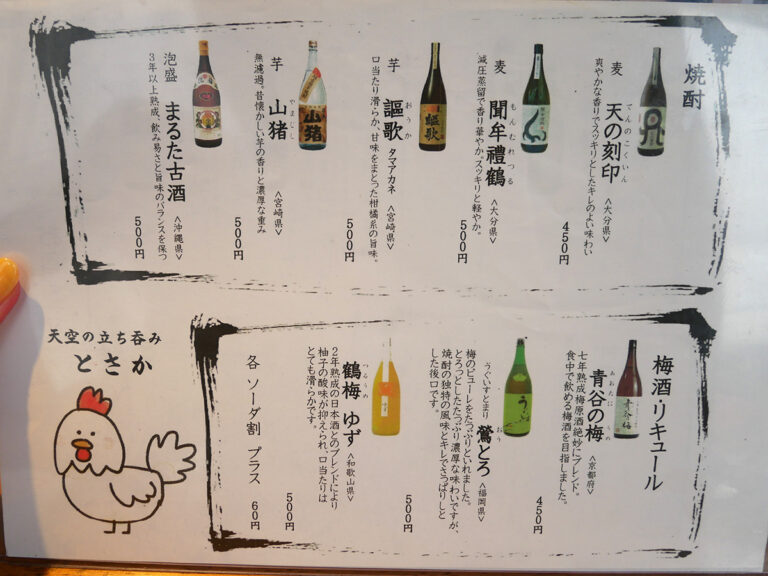 焼酎
麦 天の刻印 <大分県>
てんのこくいん
爽やかな香りでスッキリとしたキレのよい味わい
450円
麦 聞牟禮鶴 <大分県>
もんむれつる
減圧蒸留で香り華やか。スッキリと軽やか。
500円
芋 謳歌 タマアカネ <宮崎県>
おうか
口当たり滑らか、甘味をまとった柑橘系の旨味。
500円
芋 山猪 <宮崎県>
やまじし
無濾過。昔懐かしい芋の香りと濃厚な重み
500円
泡盛 まるた古酒 <沖縄県>
3年以上熟成、飲み易さと旨味のバランスを保つ
500円
山猪
謳歌
梅酒・リキュール
青谷の梅 <京都府>
あおたに うめ
七年熟成梅原酒絶妙にブレンド。
食中で飲める梅酒を目指しました。
450円
青谷梅
うぐいすとまり 鶯とろ <福岡県>
おう
梅のピューレをたっぷりといれました。
とろっとしたたっぷり濃厚な味わいですが、
焼酎の独特の風味とキレでさっぱりしと
した後口です。
500円
鶴梅 ゆず <和歌山県>
つるうめ
2年熟成の日本酒とのブレンドにより
柚子の酸味が抑えられ、口当たりは
とても滑らかです。
500円
各 ソーダ割 プラス 60円
天空の立ち呑み
とさか